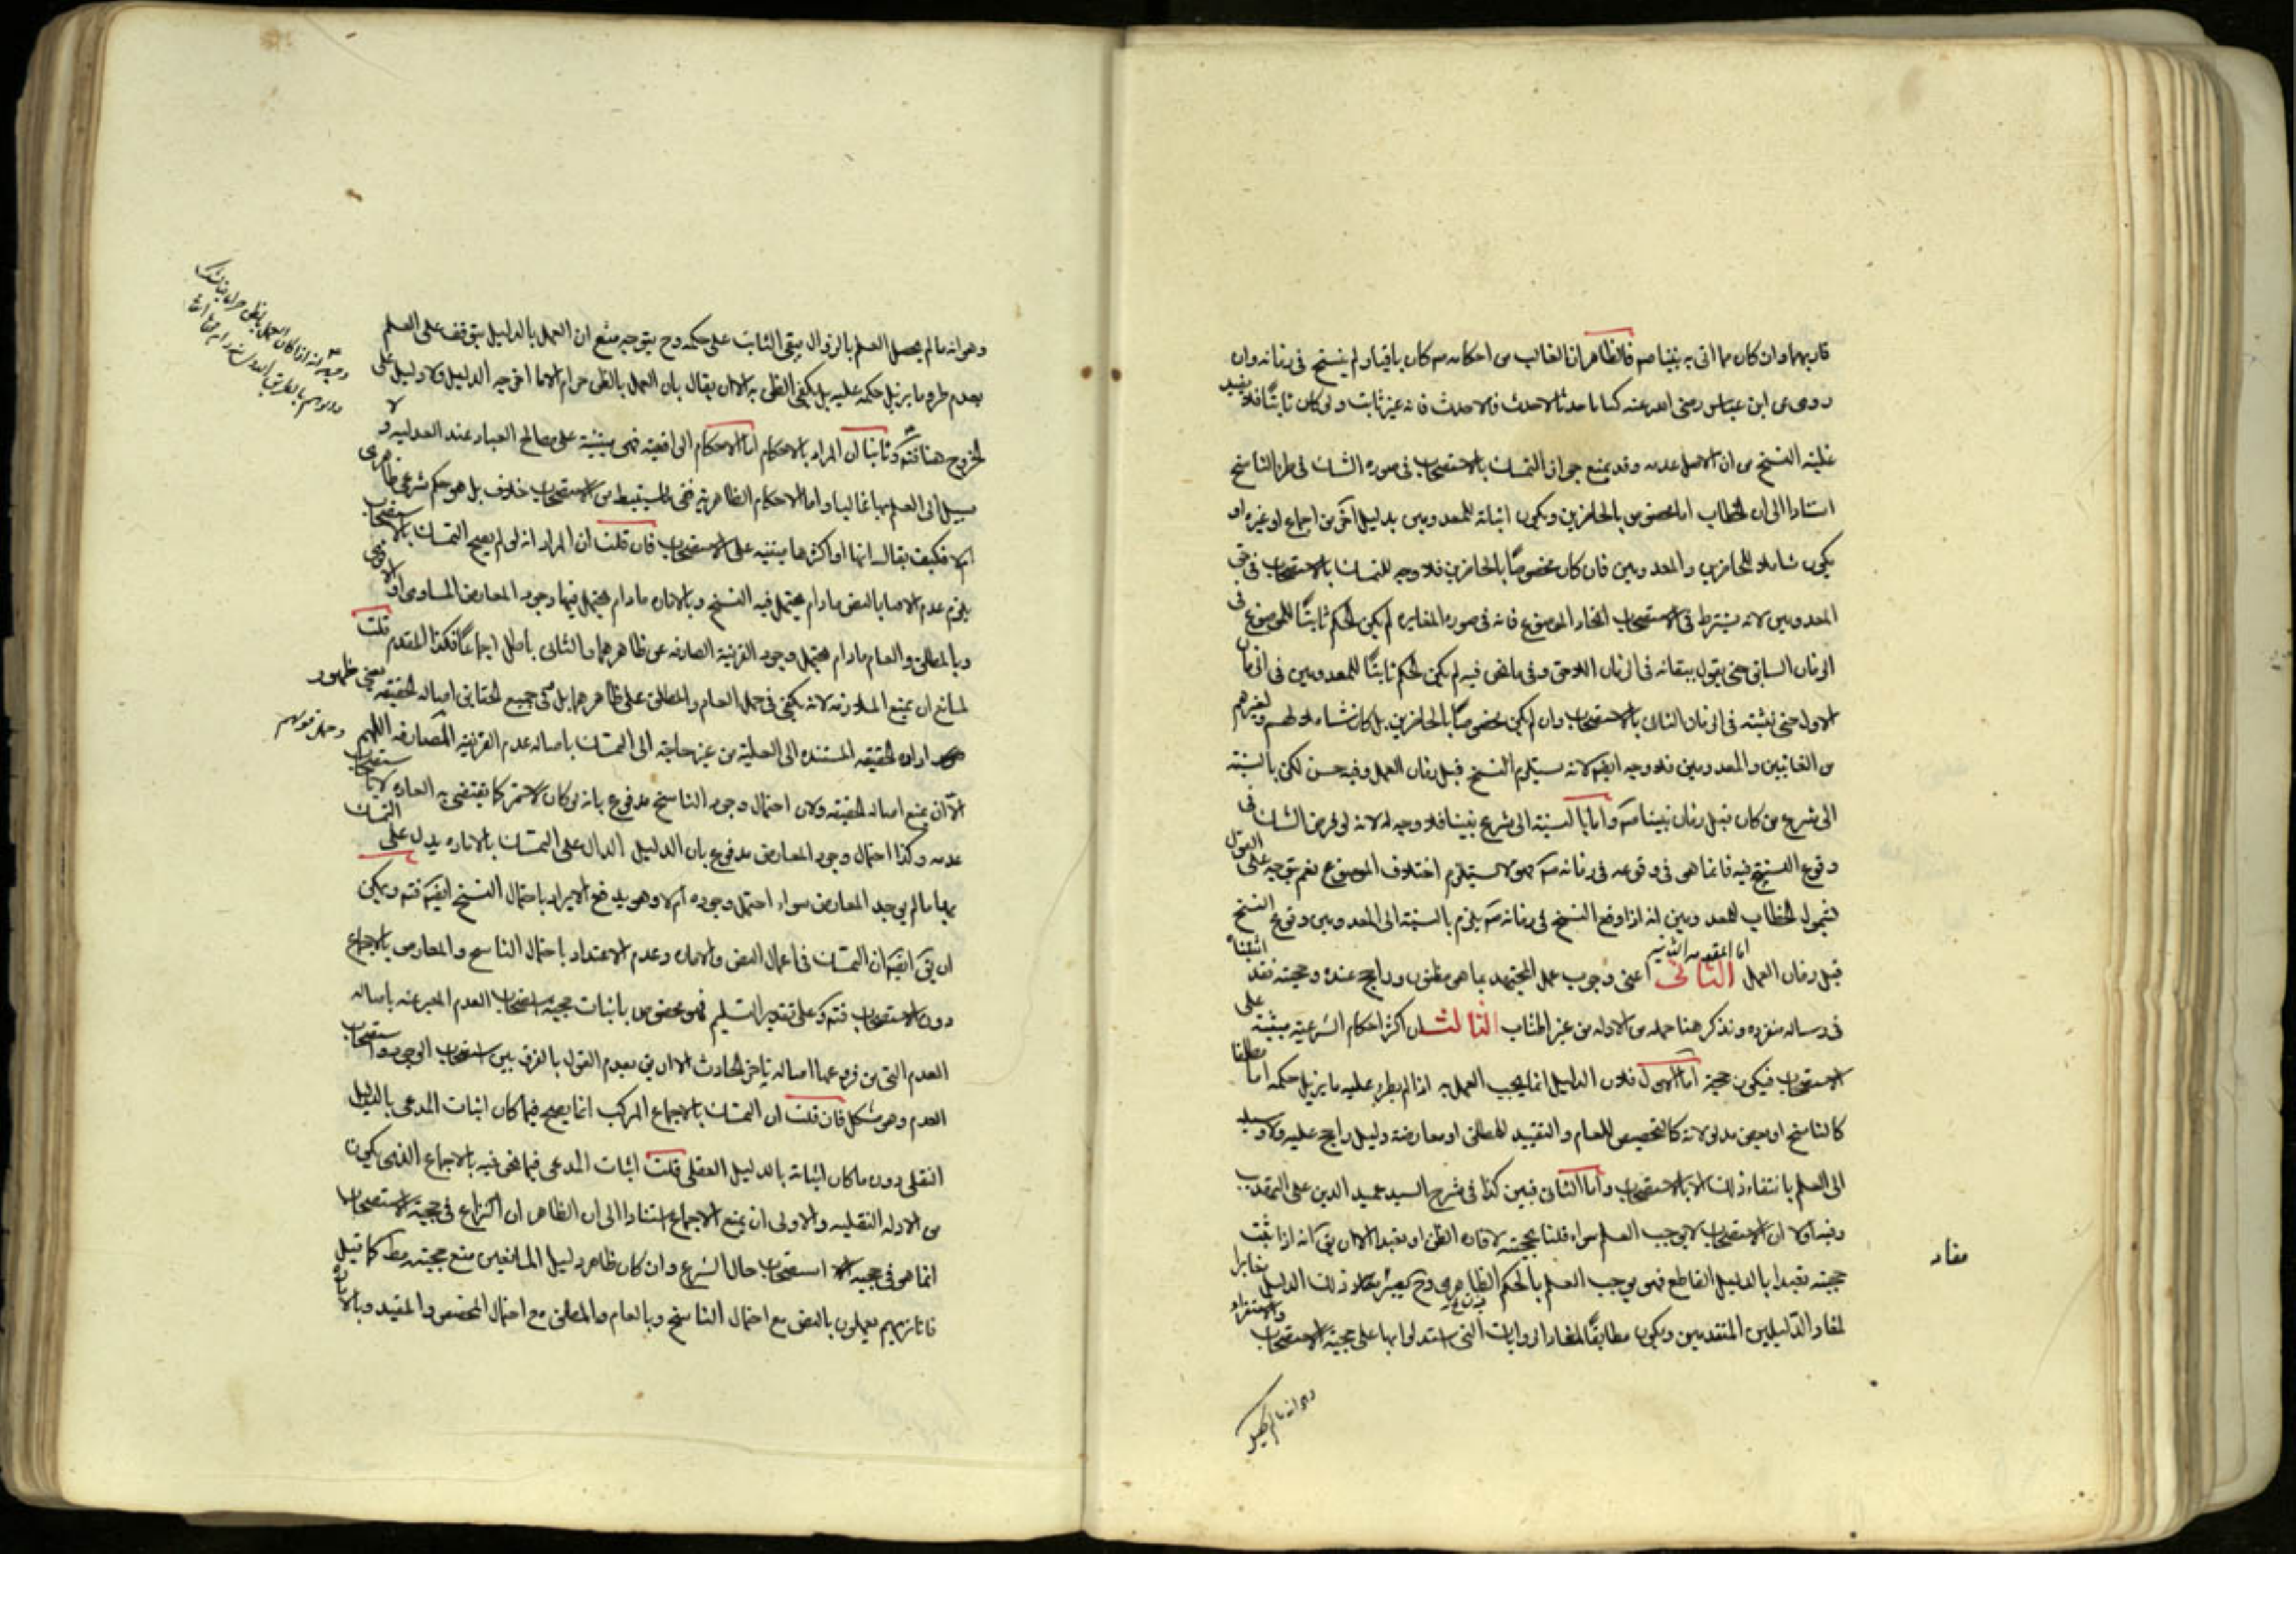 قاربهما وان كان مما اتى به نبينا صم فالظاهر ان الغالب من احكامه مه كان باقيا ولم ينسخ فى زمانه وان
روى عن ابن عباس رضى الله عنه كنا ناخذ بالاحدث فالاحدث فانه غير ثابت ولو كان ثابتًا فلا يفيد
غلبة النسخ من ان الاصل عدمه وقد يمنع جواز التمسك بالاستصحاب فى صورة الشك فى طرو الناسخ
استنادا الى ان الخطاب اما مختص بالحاضرين ويكون اثباته للمعدومين بدليل آخر من اجماع او غيره او
يكون شاملا للحاضرين والمعدومين فان كان مخصوصًا بالحاضرين فلا وجه للتمسك بالاستصحاب فى حق
المعدومين لانه يشترط فى الاستصحاب اتحاد الموضوع فانه فى صورة المغايره لم يكن الحكم ثابتًا للموضوع فى
الزمان السابق حتى يقول ببقائه فى الزمان اللاحق وفى ما نحن فيه لم يكن الحكم ثابتًا للمعدومين فى الزمان
الاول حتى نثبته فى الزمان الثانى بالاستصحاب وان لم يكن مخصوصًا بالحاضرين بل كان شاملا لهم ولغيرهم
من الغائبين والمعدومين فلا وجه ايضا لانه يستلزم النسخ قبل زمان العمل وفيه حسن لكن بالنسبة
الى شرع من كان قبل زمان نبينا صم واما بالنسبة الى شرع نبينا فلا وجه له لانه لو فرض الشك فى
وقوع النسخ فيه فانما هو فى وقوعه فى زمانه صم وهو لا يستلزم اختلاف الموضوع نعم يتوجه على القول
بشمول الخطاب للمعدومين انه اذا وقع النسخ فى زمانه صم يلزم بالنسبة الى المعدومين وقوع النسخ
اما المقدمه الثانيه
قبل زمان العمل الثانى اعنى وجوب عمل المجتهد بما هو مظنون وراجح عنده وحجيته فقد اثبتناه
فى رساله منفرده ونذكر هنا جمله من الادله من غير اطناب الثالث ان اكثر احكام الشرعيه مبتنيه على
الاستصحاب فيكون حجة اما الاول فلان الدليل انما يجب العمل به اذا لم يطرء عليه ما يزيل حكمه اما مطلقا
كالناسخ او بعض مدلولاته كالتخصيص للعام والتقييد للمطلق او معارضة دليل راجح عليه ولا سبيل
الى العلم بانتفاء ذلك الا بالاستصحاب واما الثانى فبين كذا فى شرح السيد عميد الدين على التهذيب
وفيه اولا ان الاستصحاب لا يوجب العلم سواء قلنا بحجيته لافادة الظن او تعبدا الا ان يق انه اذا ثبت
حجيته تعبدا بالدليل القاطع فهو يوجب العلم بالحكم الظاهرى وح يصير مفاد ذلك الدليل مغايرا
لمفاد الدليلين المتقدمين ويكون مطابقًا لمفاد الروايات التى استدلوا بها على حجية الاستصحاب والاستقراء
مفاد
وهو انه ما لم يحصل
وهو انه ما لم يحصل العلم بالزوال يبقى الثابت على حكمه وح يتوجه منع ان العمل بالدليل يتوقف على العلم
بعدم طرو ما يزيل حكمه عليه بل يكفى الظن به الا ان يقال بان العمل بالظن حرام الا ما اخرجه الدليل ولا دليل على
الخروج هنا فتم وثانيا ان المراد بالاحكام اما الاحكام الواقعيه فهى مبتنية على مصالح العباد عند العدليه ولا
سبيل الى العلم بها غالبا واما الاحكام الظاهرية ففى المستنبط من الاستصحاب خلاف بل هو حكم شرعى ظاهرى
ام لا فكيف يقال انها او اكثرها مبتنيه على الاستصحاب فان قلت ان المراد انه لو لم يصح التمسك بالاستصحاب
يلزم عدم الاخذ بالنص مادام يحتمل فيه النسخ وبالاماره مادام يحتمل فيها وجود المعارض المساوى او الاقوى
وبالمطلق والعام مادام يحتمل وجود القرنية الصارفه عن ظاهرهما والثانى باطل اجماعًا فكذا المقدم قلت
لمانع ان يمنع الملازمه لانه يكفى فى حمل العام والمطلق على ظاهرهما بل فى جميع الحقايق اصالة الحقيقه بمعنى ظهور
ارادة الحقيقه المستنده الى الغلبة من غير حاجة الى التمسك باصالة عدم القرنية الصارفه اللهم
الا ان يمنع اصالة الحقيقه ولان احتمال وجود الناسخ مدفوع بانه لو كان لاشتهر كما يقتضى به العاده لا باستصحاب
عدمه وكذا احتمال وجود المعارض مدفوع بان الدليل الدال على التمسك بالاماره يدل على التمسك
بها ما لم يوجد المعارض سواء احتمل وجوده ام لا وهو يدفع الايراد باحتمال النسخ ايضا فتم ويمكن
ان يق ايضا ان التمسك فى اعمال النص والاماره وعدم الاعتداد باحتمال الناسخ والمعارض بالاجماع
دون الاستصحاب فتم وعلى تقدير التسليم فهو مختص باثبات حجية استصحاب العدم المعبر عنه باصالة
العدم التى من فروعها اصالة تاخر الحادث الا ان يق بعدم القول بالفرق بين استصحاب الوجود واستصحاب
العدم وهو مشكل فان قلت ان التمسك بالاجماع المركب انما يصح فيما كان اثبات المدعى بالدليل
النقلى دون ما كان اثباته بالدليل العقلى قلت اثبات المدعى فيما نحن فيه بالاجماع الذى يكون
من الادله النقليه والاولى ان يمنع الاجماع استنادا الى ان الظاهر ان النزاع فى حجية الاستصحاب
انما هو فى حجية استصحاب حال الشرع وان كان ظاهر دليل المانعين منع حجيته مط كما قيل
فانا نريهم يعملون بالنص مع احتمال الناسخ وبالعام والمطلق مع احتمال المخصص والمقيد وبالاماره